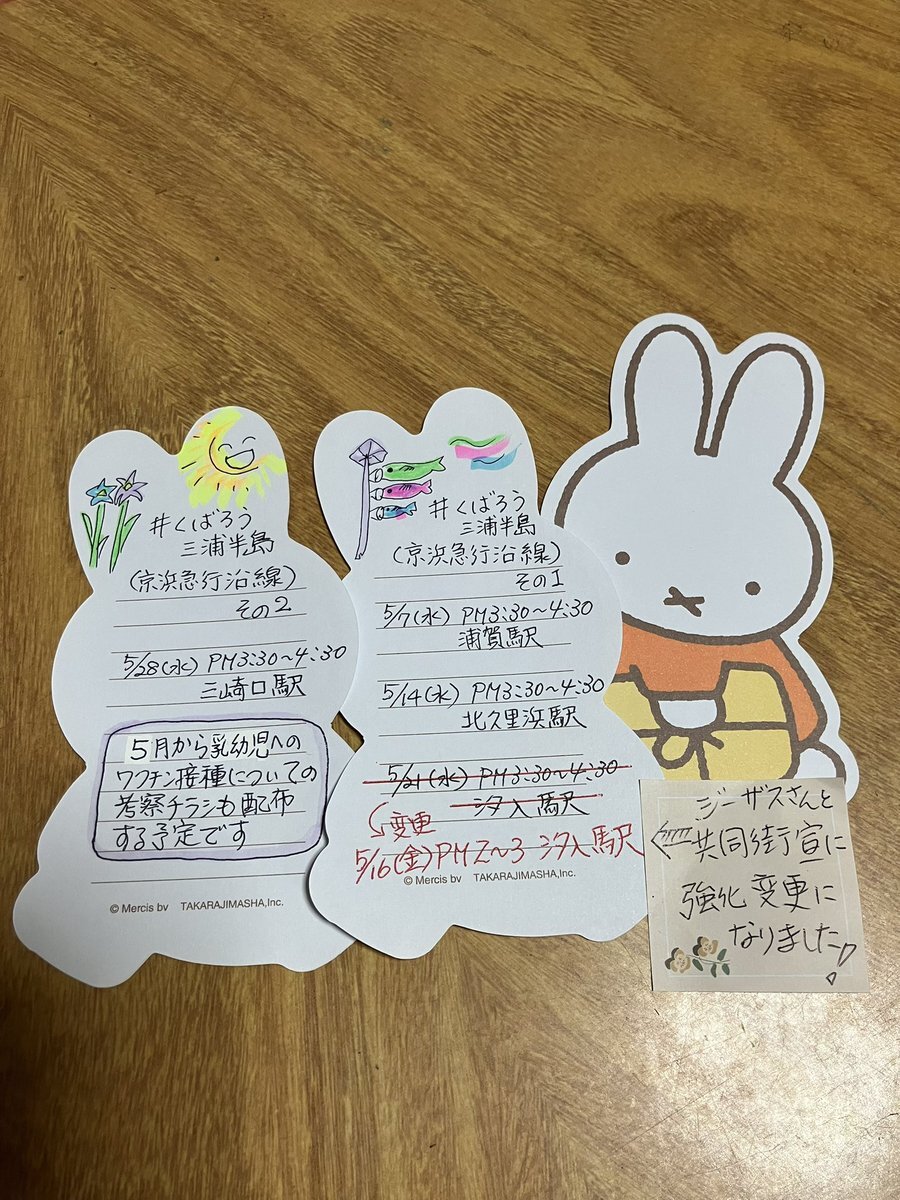 #くばろう
三浦半島
(京浜急行沿線)
その2
5/28(水) PM3:30〜4:30
三崎口駅
5月から乳幼児への
ワクチン接種についての
考察チラシも配布
する予定です
© Mercis bv TAKARAJIMASHA,Inc.
#くばろう
三浦半島
(京浜急行沿線)
その1
5/7(水) PM3:30〜4:30
浦賀駅
5/14(水) PM3:30〜4:30
北久里浜駅
5/21(水) PM3:30〜4:30
汐入駅
変更
5/16(金)PM2〜3 汐入駅
© Mercis bv TAKARAJIMASHA,Inc.
ジーザスさんと
共同街宣に
強化変更に
なりました!